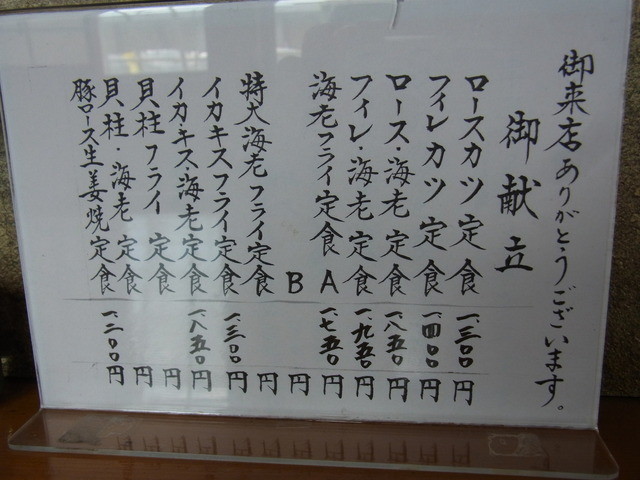 御来店ありがとうございます。
御献立
ロースカツ定食 一.三〇〇円
フィレカツ定食 一.四〇〇円
ロース・海老定食 一.八五〇円
フィレ・海老定食 一.九五〇円
海老フライ定食 A 一.七五〇円
B 円
特大海老フライ定食 円
イカキスフライ定食 一.三〇〇円
イカキス・海老定食 一.八五〇円
貝柱フライ定食 円
貝柱・海老定食 円
豚ロース生姜焼定食 一.二〇〇円